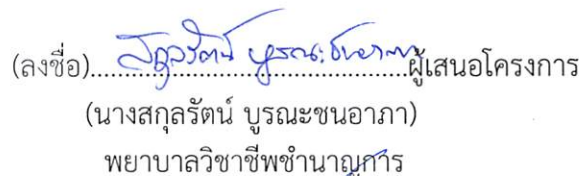 (ลงชื่อ)....สกุลรัตน์ บูรณะชนอาภา....ผู้เสนอโครงการ
(นางสกุลรัตน์ บูรณะชนอาภา)
พยาบาลวิชาชีพชำนาญการ